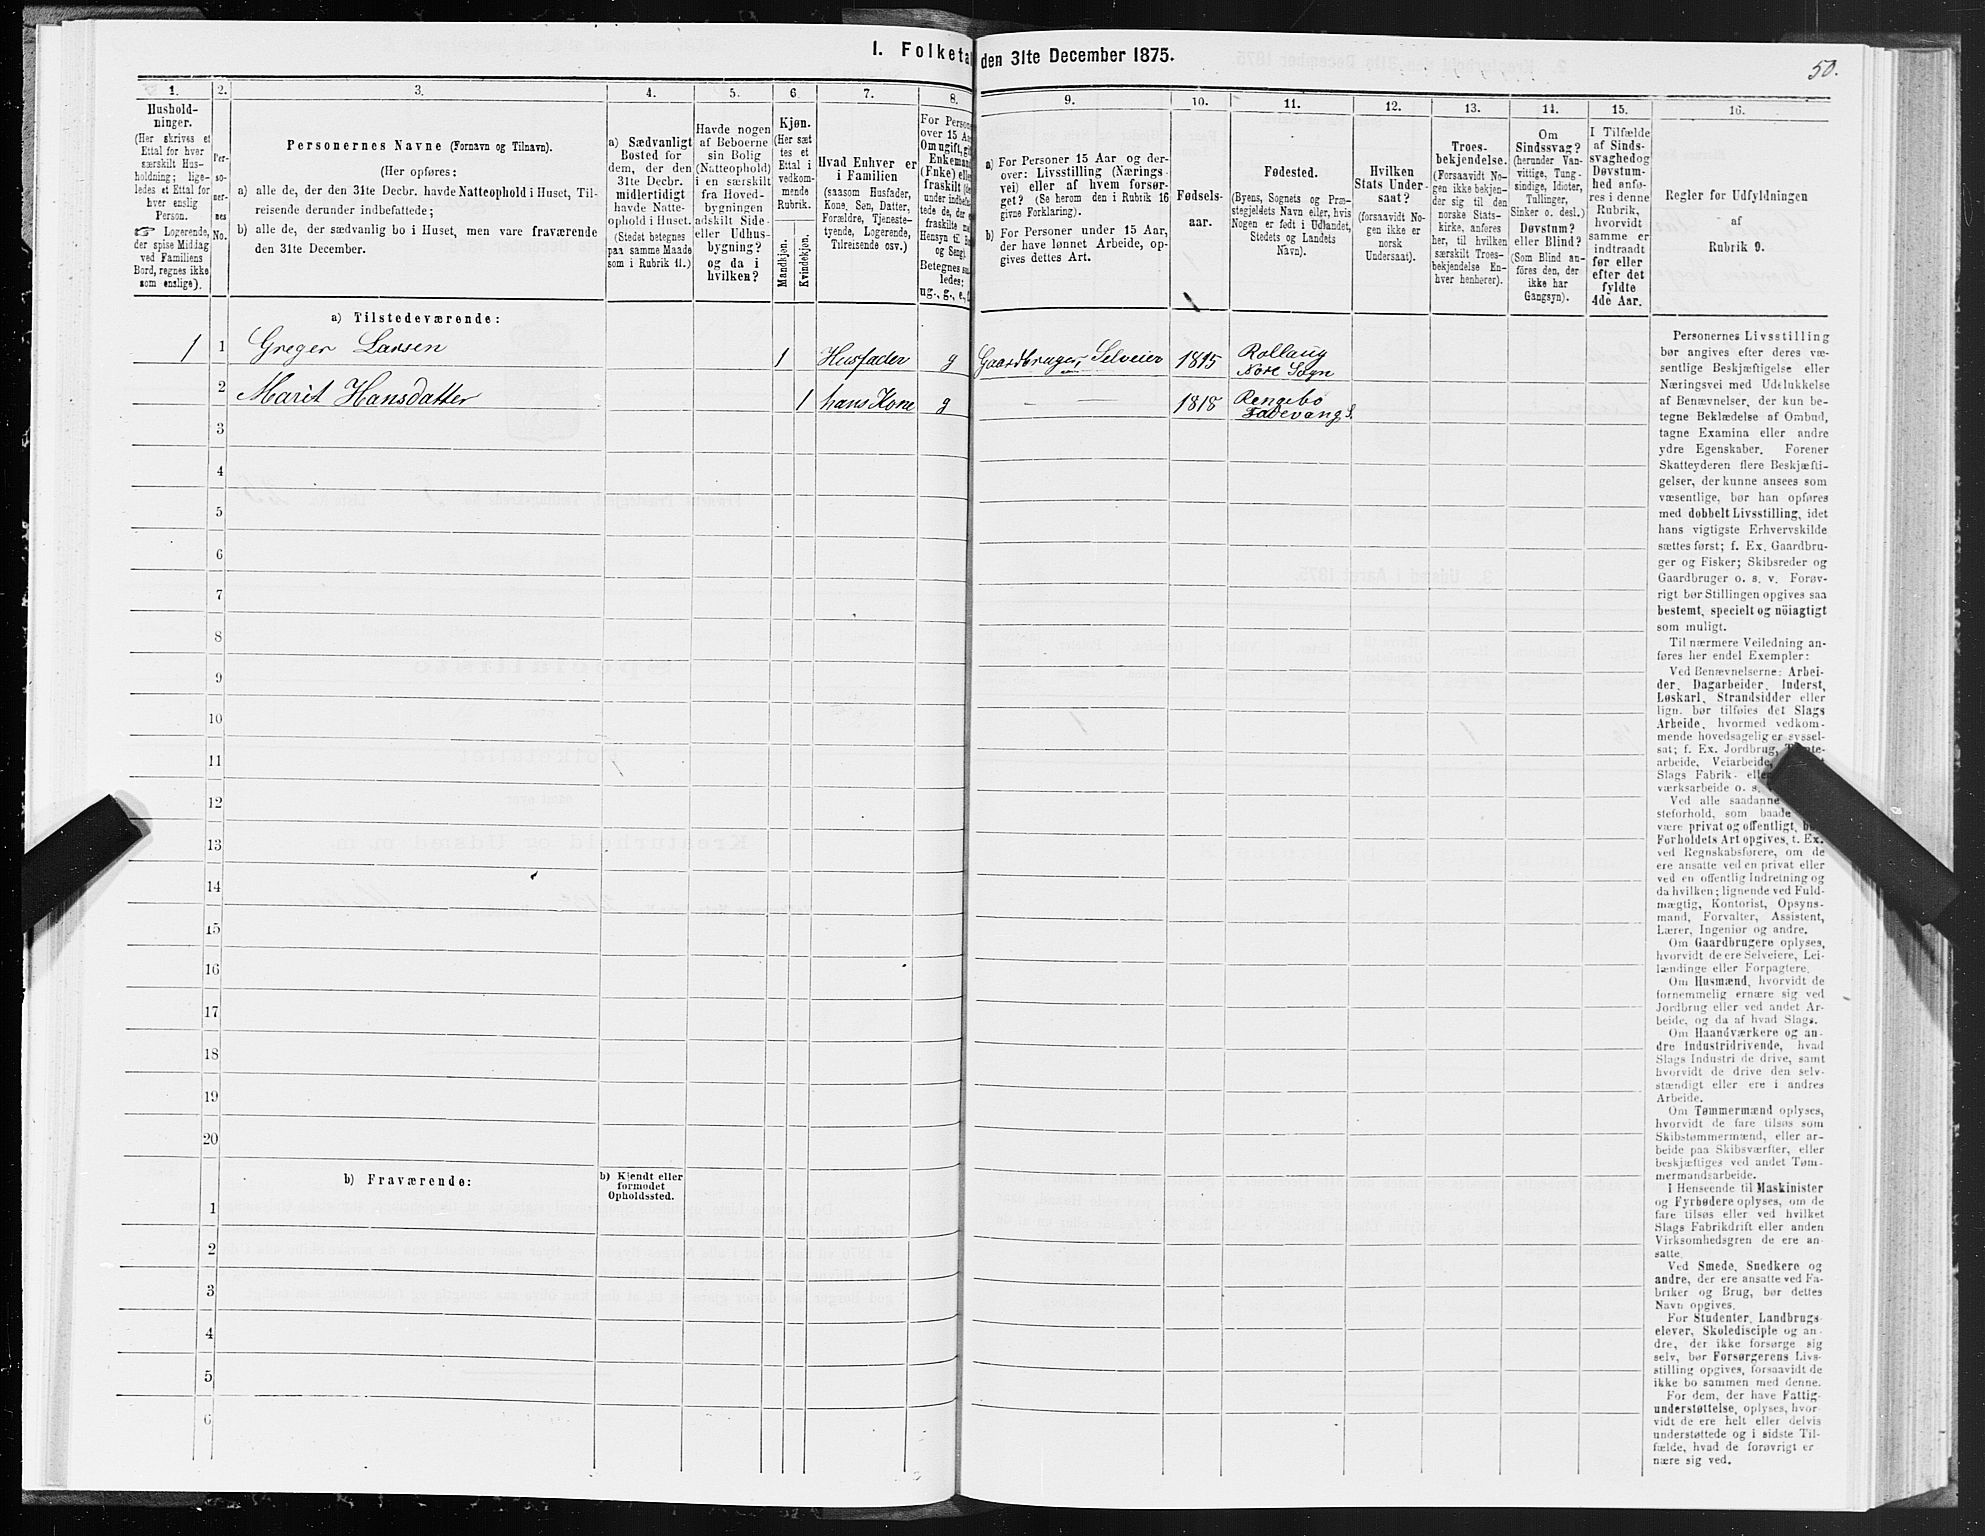 I. Folketal den 31te December 1875.
50.
1.
Hushold-
ninger.
(Her skrives et
Ettal for hver
særskilt Hus-
holdning; lige-
ledes et Ettal for
hver enslig
Person.
☞ Logerende,
der spise Middag
ved Familiens
Bord, regnes ikke
som enslige).
2.
Per-
so-
ner-
nes
No.
3.
Personernes Navne (Fornavn og Tilnavn).
(Her opføres:
a) alle de, der den 31te Decbr. havde Natteophold i Huset, Til-
reisende derunder indbefattede;
b) alle de, der sædvanlig bo i Huset, men vare fraværende
den 31te December.
4.
a) Sædvanligt
Bosted for
dem, der den
31te Decbr.
midlertidigt
havde Natte-
ophold i Huset.
(Stedet betegnes
paa samme Maade
som i Rubrik 11.)
5.
Havde nogen
af Beboerne
sin Bolig
(Natteophold)
i en særskilt
fra Hoved-
bygningen
adskilt Side-
eller Udhus-
bygning?
og da i
hvilken?
6.
Kjøn.
(Her sæt
tes et
Ettal i
vedkom-
mende
Rubrik.
Mandkjøn.
Kvindekjøn.
7.
Hvad Enhver er
i Familien
(saasom Husfader,
Kone, Søn, Datter,
Forældre, Tjeneste-
tyende, Logerende,
Tilreisende osv.)
8.
For Person
over 15 Aa
Om ugift, gi
Enkemand
(Enke) elle
fraskilt (de
under indbefat
tede de, der e
fraskilte me
Hensyn til
og Seng).
Betegnes saa
ledes:
ug., g., e.,
9.
a) For Personer 15 Aar og der-
over: Livsstilling (Nærings-
vei) eller af hvem forsør-
get? (Se herom den i Rubrik 16
givne Forklaring).
b) For Personer under 15 Aar,
der have lønnet Arbeide, op-
gives dettes Art.
10.
Fødsels-
aar.
11.
Fødested.
(Byens, Sognets og Præ-
stegjeldets Navn eller, hvis
Nogen er født i Udlandet,
Stedets og Landets
Navn).
12.
Hvilken
Stats Under-
saat?
(forsaavidt No-
gen ikke er
norsk
Undersaat).
13.
Troes-
bekjendelse.
(Forsaavidt No-
gen ikke bekjen-
der sig til den
norske Stats-
kirke, anføres
her, til hvilken
særskilt Troes-
bekjendelse En-
hver henhører).
14.
Om
Sindssvag?
(herunder Van-
vittige, Tung-
sindige, Idioter,
Tullinger,
Sinker o. desl.)
Døvstum?
eller Blind?
(Som Blind an-
føres den, der
ikke har
Gangsyn).
15.
I Tilfælde
af Sinds-
svaghed og
Døvstum-
hed anfø-
res i denne
Rubrik,
hvorvidt
samme er
indtraadt
før eller
efter det
fyldte
4de Aar.
16.
Regler for Udfyldningen
af
Rubrik 9.
a) Tilstedeværende:
1 1 Greger Larsen 1 Husfader g Gaardbruger, Selveier 1815 Rollaug
Nore Sogn
2 Marit Hansdatter 1 hans Kone g — 1818 Rengebo
Fadevang S.
3
4
5
6
7
8
9
10
11
12
13
14
15
16
17
18
19
20
b) Fraværende:
b) Kjendt eller
formodet
Opholdssted.
1
2
3
4
5
6
Personernes Livsstilling
bør angives efter deres væ-
sentlige Beskjæftigelse eller
Næringsvei med Udelukkelse
af Benævnelser, der kun be-
tegne Beklædelse af Ombud,
tagne Examina eller andre
ydre Egenskaber. Forener
Skatteyderen flere Beskjæfti-
gelser, der kunne ansees som
væsentlige, bør han opføres
med dobbelt Livsstilling, idet
hans vigtigste Erhvervskilde
sættes først; f. Ex. Gaardbru-
ger og Fisker; Skibsreder og
Gaardbruger o. s. v. Forøv-
rigt bør Stillingen opgives saa
bestemt, specielt og nöiagtigt
som muligt.
Til nærmere Veiledning an-
føres her endel Exempler:
Ved Benævnelserne: Arbei-
der, Dagarbeider, Inderst,
Løskarl, Strandsidder eller
lign. bør tilføies det Slags
Arbeide, hvormed vedkom-
mende hovedsagelig er syssel-
sat; f. Ex. Jordbrug, Tomte-
arbeide, Veiarbeide,
Slags Fabrik- elle
værksarbeide o. s.
Ved alle saadanne
steforhold, som baade
være privat og offentligt, bør
Forholdets Art opgives, t. Ex.
ved Regnskabsførere, om de
ere ansatte ved en privat eller
ved en offentlig Indretning og
da hvilken; lignende ved Fuld-
mægtig, Kontorist, Opsyns-
mand, Forvalter, Assistent,
Lærer, Ingeniør og andre.
Om Gaardbrugere oplyses,
hvorvidt de ere Selveiere, Lei-
lændinge eller Forpagtere.
Om Husmænd, hvorvidt de
fornemmelig ernære sig ved
Jordbrug eller ved andet Ar-
beide, og da af hvad Slags.
Om Haandværkere og an-
dre Industridrivende, hvad
Slags Industri de drive, samt
hvorvidt de drive den selv-
stændigt eller ere i andres
Arbeide.
Om Tømmermænd oplyses,
hvorvidt de fare tilsøs som
Skibstømmermænd, eller ar-
beide paa Skibsværfter, eller
beskjæftiges ved andet Tøm-
mermandsarbeide.
I Henseende til Maskinister
og Fyrbødere oplyses, om de
fare tilsøs eller ved hvilket
Slags Fabrikdrift eller anden
Virksomhedsgren de ere an-
satte.
Ved Smede, Snedkere og
andre, der ere ansatte ved Fa-
briker og Brug, bør dettes
Navn opgives.
For Studenter, Landbrugs-
elever, Skoledisciple og an-
dre, der ikke forsørge sig
selv, bør Forsørgerens Livs-
stilling opgives, forsaavidt de
ikke bo sammen med denne.
For dem, der have Fattig-
understøttelse, oplyses, hvor-
vidt de ere helt eller delvis
understøttede og i sidste Til-
fælde, hvad de forøvrigt er
nære sig ved.